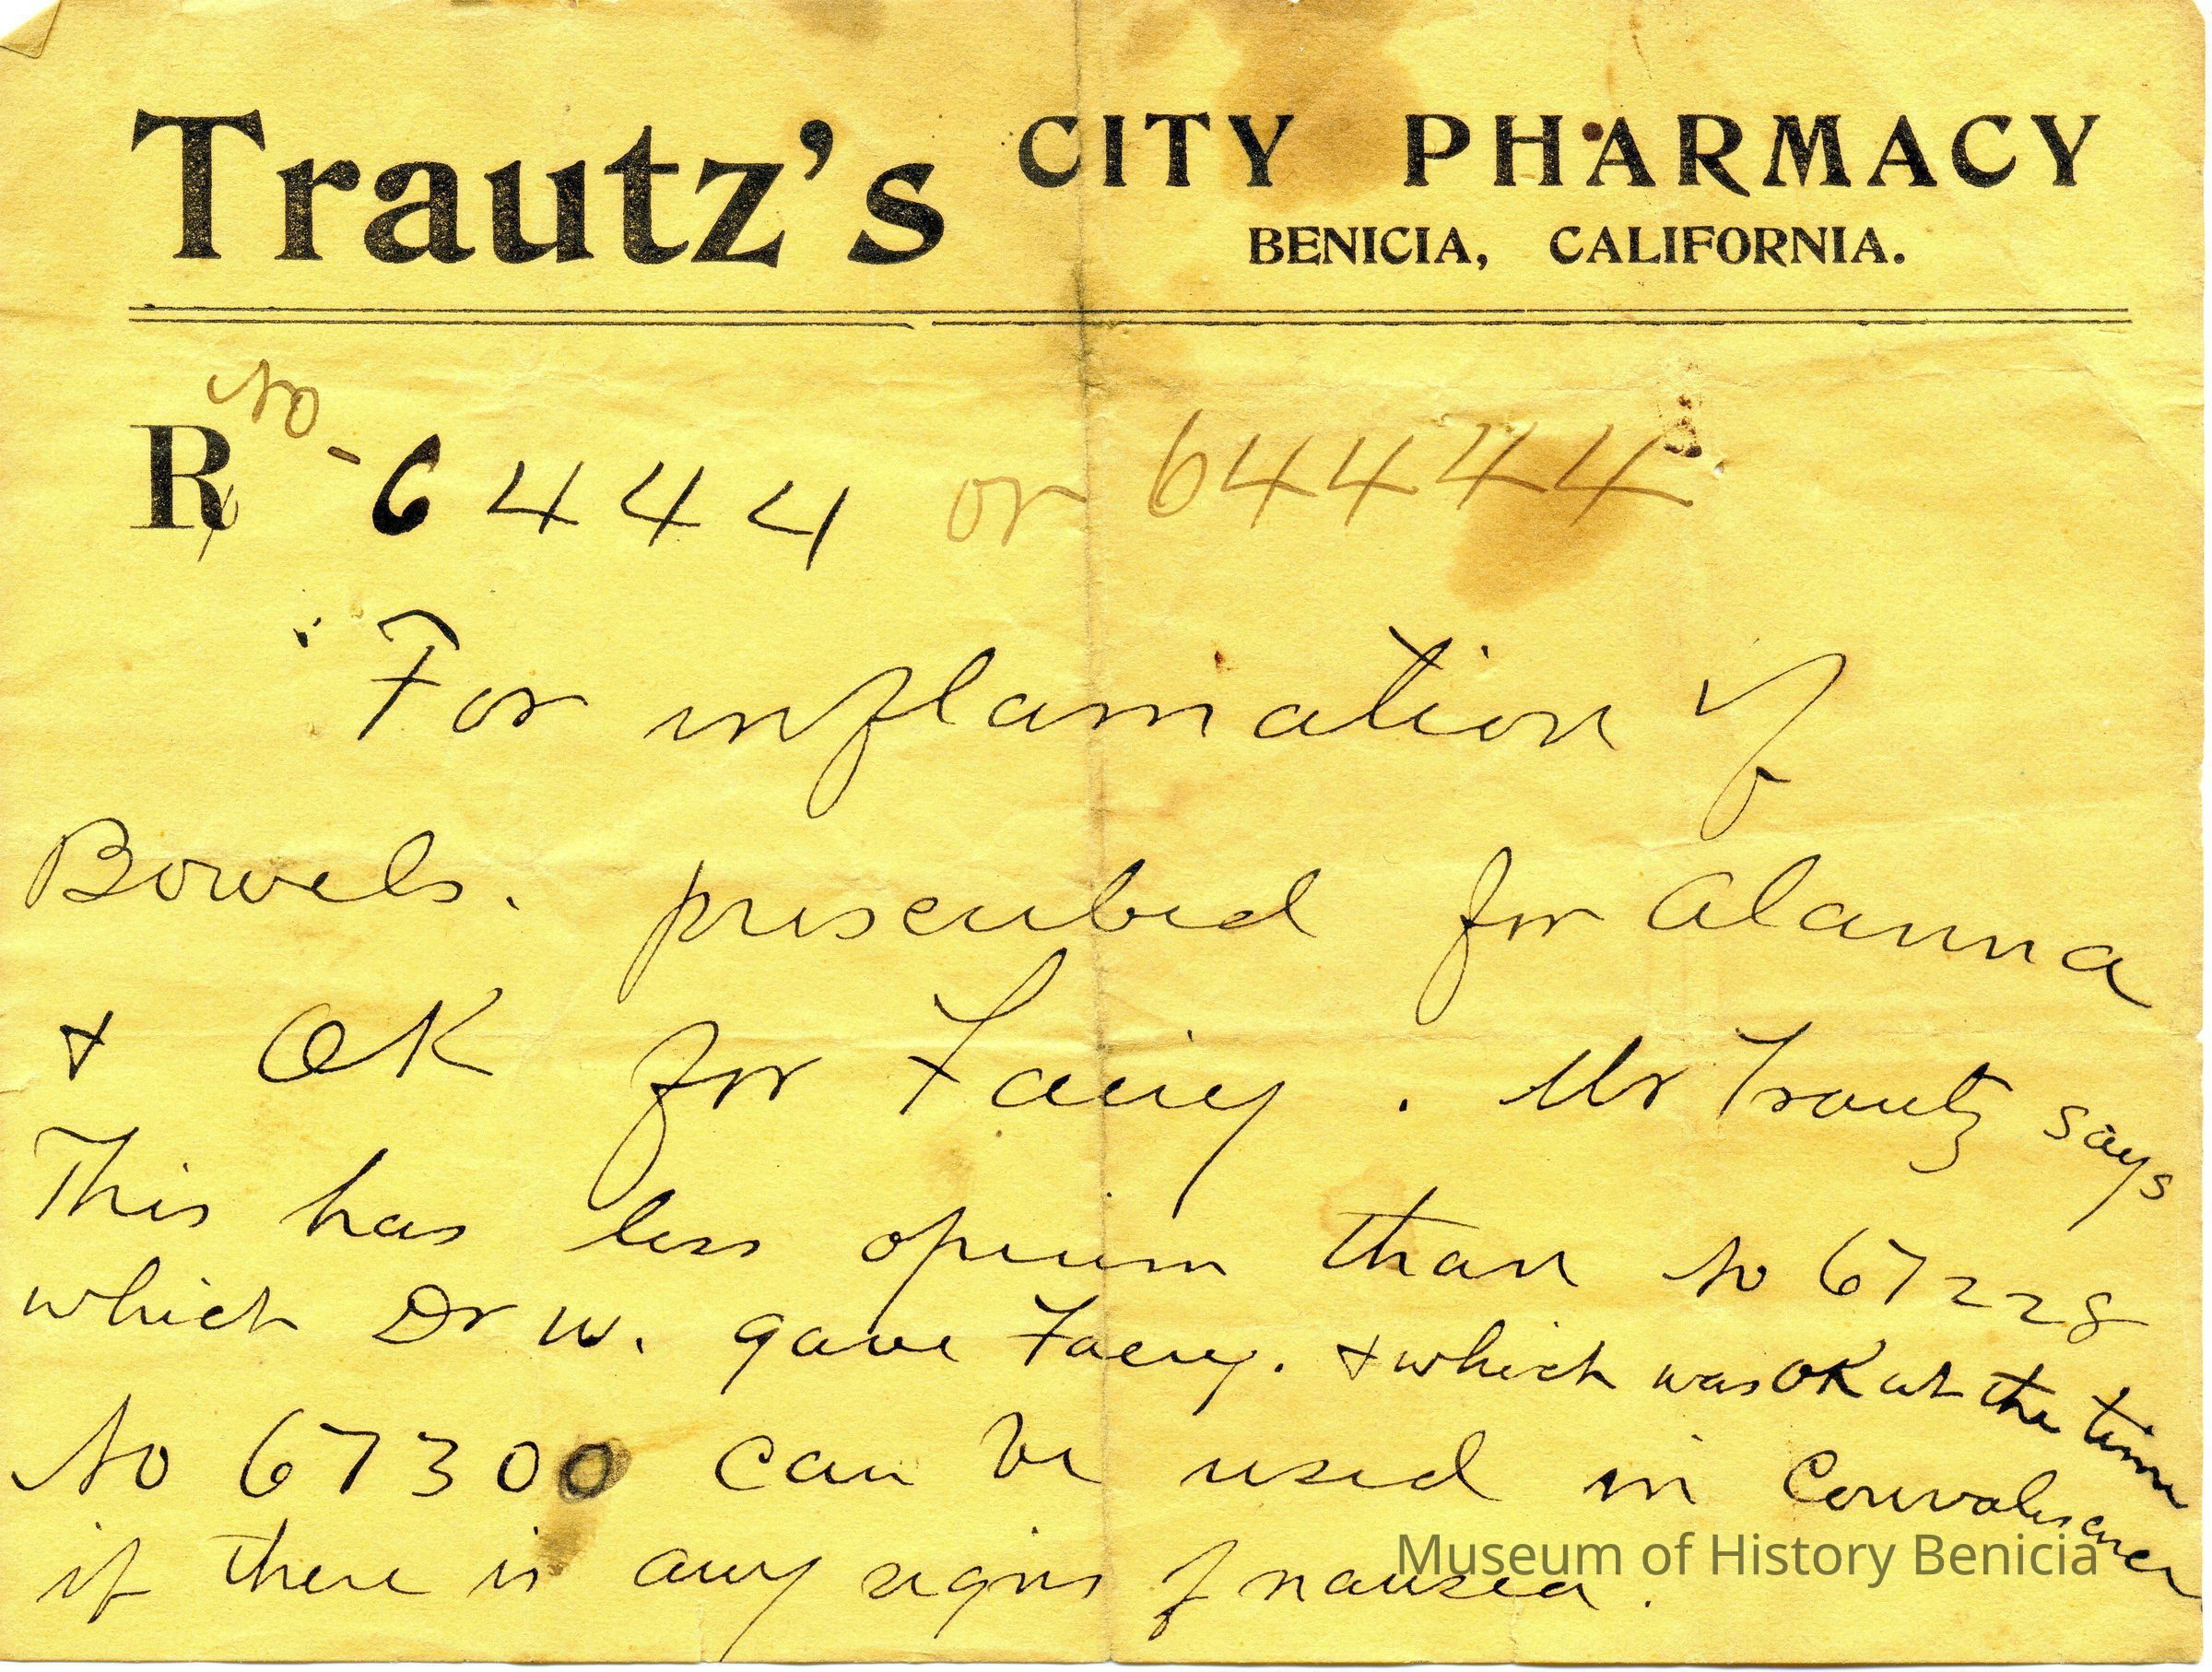 Trautz's CITY PHARMACY
BENICIA, CALIFORNIA.
No
℞ - 6444 or 64444
For inflamation of
Bowels. prescribed for Alanna
& OK for Faery. Mr Trautz says
This has less opium than No 67228
which Dr W. gave Faery. & which was OK at the time
No 67300 can be used in Convalescence
if there is any signs of nausea.
Museum of History Benicia